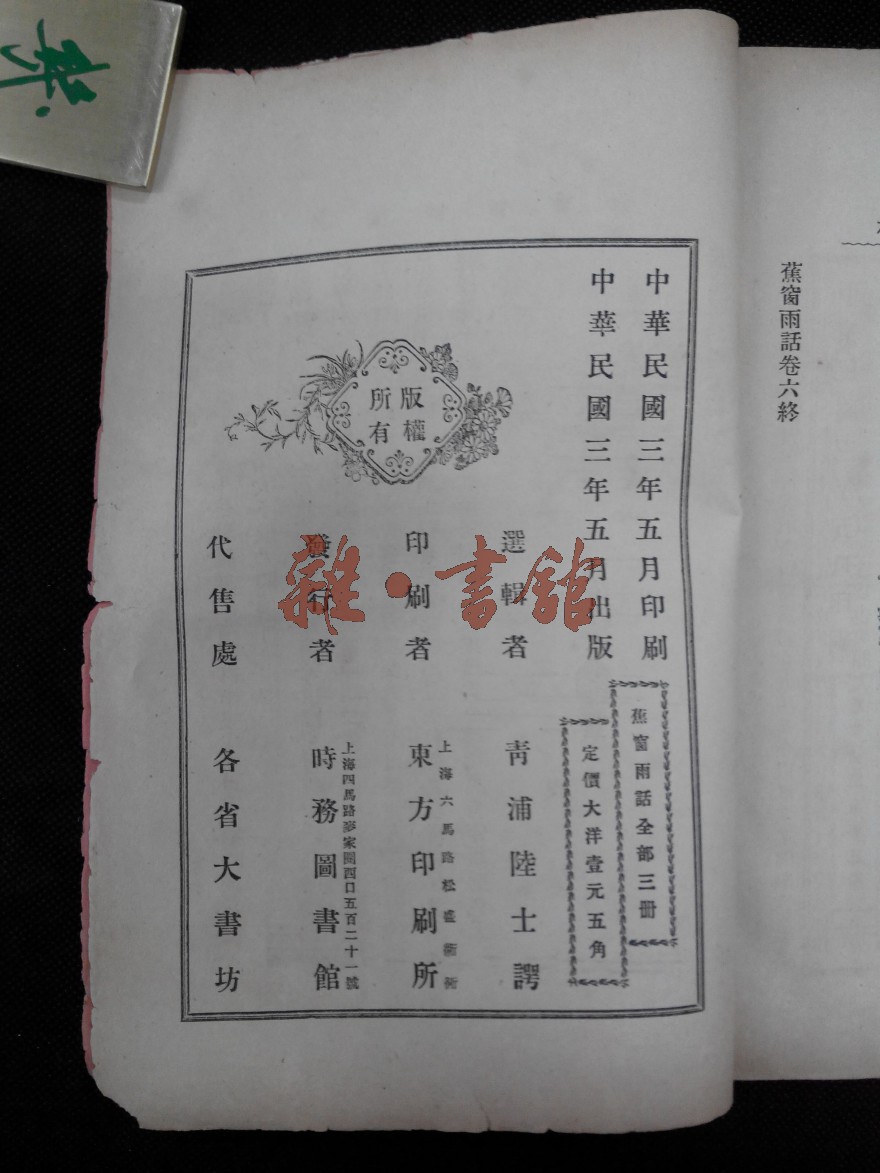 蕉窗雨話卷六終
中華民國三年五月印刷
中華民國三年五月出版
蕉窗雨話全部三册
定價大洋壹元五角
選輯者
青浦陸士諤
印刷者
上海六馬路松盛衚衕
東方印刷所
版權
所有
發行者
上海四馬路麥家圈四口五百二十一號
時務圖書館
代售處
各省大書坊
雜·書舘